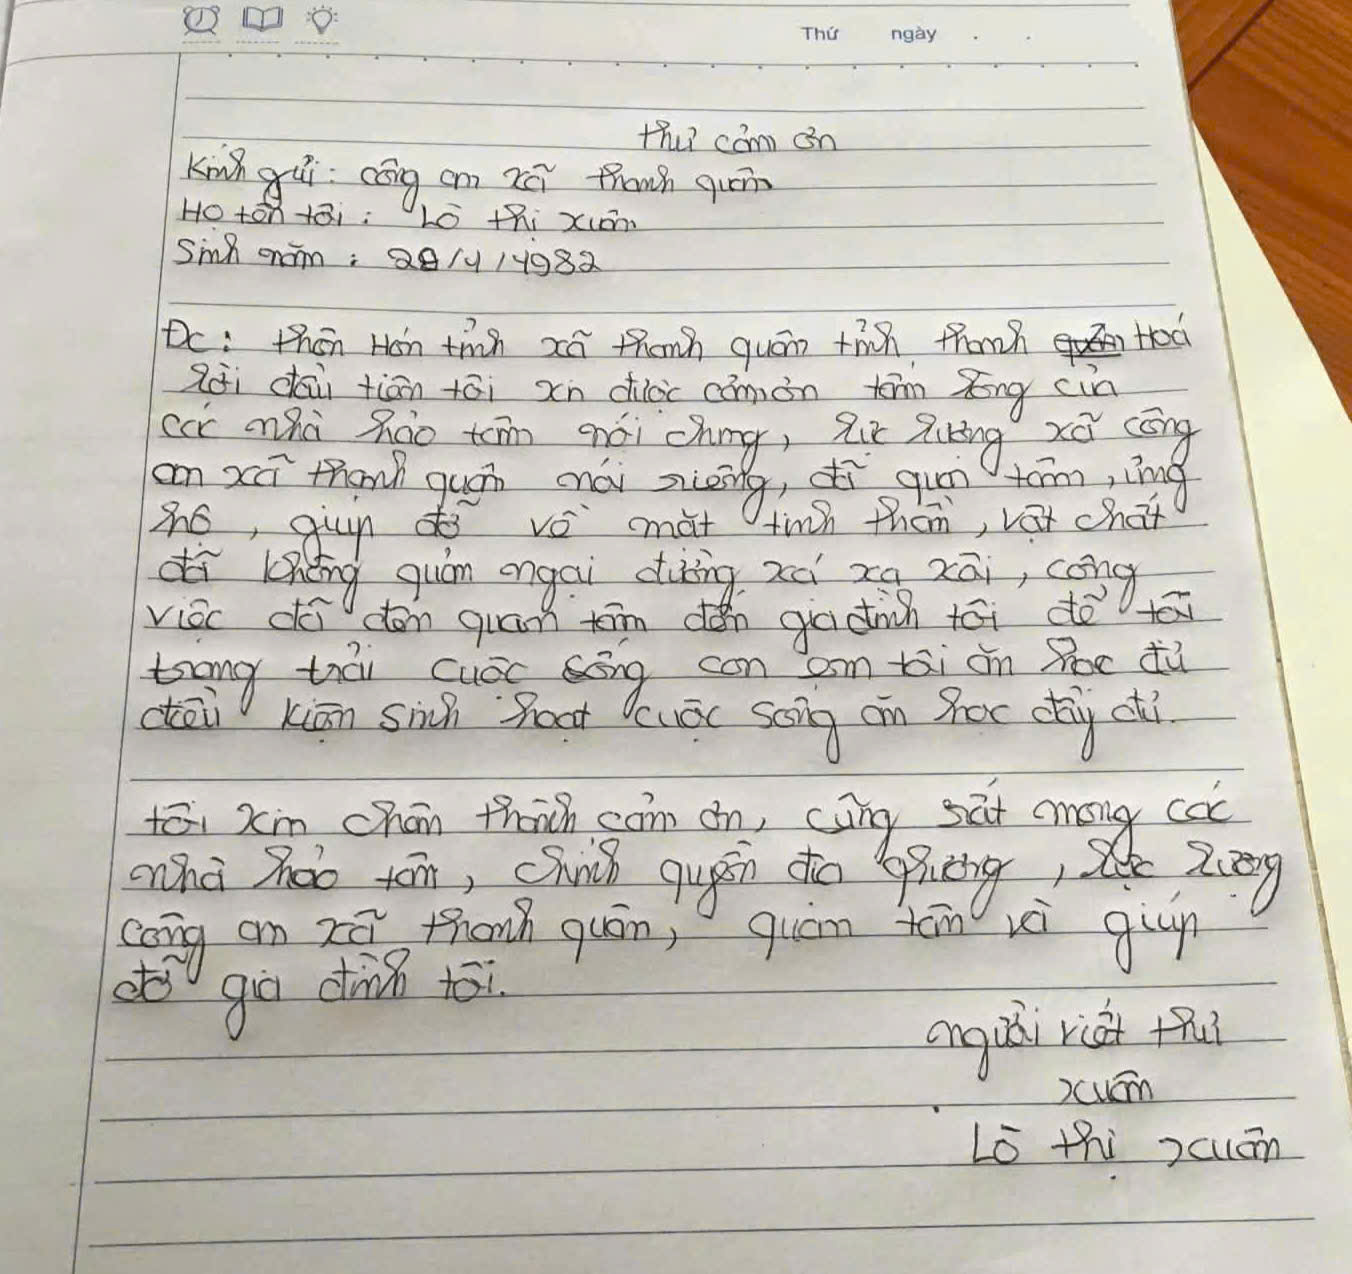 Thứ ngày . .
thư cảm ơn
Kính gửi: công an xã thanh quân
Họ tên tôi: Lò thị xuân
Sinh năm: 28/4/1982
Đc: thôn Hón tỉnh xã thanh quân tỉnh thanh Hoá
Lời đầu tiên tôi xin được cảm ơn tấm lòng của
các nhà hảo tâm nói chung, lực lượng xã công
an xã thanh quân nói riêng, đã quan tâm, ủng
hộ, giúp đỡ về mặt tinh thần, vật chất
đã không quản ngại đường xá xa xôi, công
việc đã đến quan tâm đến gia đình tôi để tôi
trang trải cuộc sống con em tôi ăn học đủ
điều kiện sinh hoạt cuộc sống ăn học đầy đủ.
tôi xin chân thành cảm ơn, cũng rất mong các
nhà hảo tâm, chính quyền địa phương, lực lượng
công an xã thanh quân, quan tâm và giúp
đỡ gia đình tôi.
người viết thư
xuân
Lò thị xuân